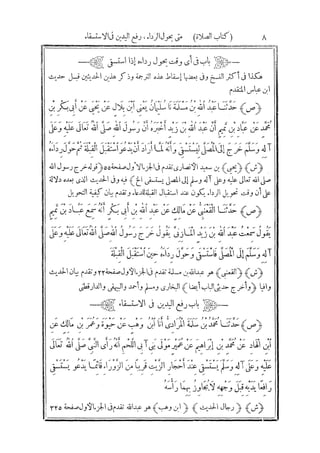 ٨ (كتاب الصلاة) متى يحول الرداء. رفع اليدين فى الاستسقاء
باب فى أى وقت يحول رداءه إذا استسقى
هكذا فى أكثر النسخ وفى بعضها إسقاط هذه الترجمة وذكر هذين الحديثين قبل حديث
ابن عباس المتقدم
(ص) حَدَّثَنَا عَبْدُ اللهِ بْنُ مَسْلَمَةَ نَا سُلَيْمَانُ يَعْنِى ابْنَ بِلَالٍ عَنْ يَحْيَى عَنْ أَبِى بَكْرِ بْنِ
مُحَمَّدٍ عَنْ عَبَّادِ بْنِ تَمِيمٍ أَنَّ عَبْدَ اللهِ بْنَ زَيْدٍ أَخْبَرَهُ أَنَّ رَسُولَ اللهِ صَلَّى اللهُ تَعَالَى عَلَيْهِ وَعَلَى
آلِهِ وَسَلَّمَ خَرَجَ إِلَى الْمُصَلَّى يَسْتَسْقِى وَأَنَّهُ لَمَّا أَرَادَ أَنْ يَدْعُوَ اسْتَقْبَلَ الْقِبْلَةَ ثُمَّ حَوَّلَ رِدَاءَهُ
(ش) (يحيى) بن سعيد الأنصارى تقدم فى الجزء الأول صفحة ٥٥ (قوله خرج رسول الله
صلى الله تعالى عليه وعلى آله وسلم إلى المصلى يستسقى الخ) فيه وفى الحديث الذى بعده دلالة
على أن وقت تحويل الرداء يكون عند استقبال القبلة للدعاء. وتقدم بيان كيفية التحويل
(ص) حَدَّثَنَا الْقَعْنَبِىُّ عَنْ مَالِكٍ عَنْ عَبْدِ اللهِ بْنِ أَبِى بَكْرٍ أَنَّهُ سَمِعَ عَبَّادَ بْنَ تَمِيمٍ
يَقُولُ سَمِعْتُ عَبْدَ اللهِ بْنَ زَيْدٍ الْمَازِنِىَّ يَقُولُ خَرَجَ رَسُولُ اللهِ صَلَّى اللهُ تَعَالَى عَلَيْهِ وَعَلَى
آلِهِ وَسَلَّمَ إِلَى الْمُصَلَّى فَاسْتَسْقَى وَحَوَّلَ رِدَاءَهُ حِينَ اسْتَقْبَلَ الْقِبْلَةَ
(ش) (القعنبى) هو عبدالله بن مسلمة تقدم فى الجزء الأول صفحة ٢٢ وتقدم بيان الحديث
وافيا (وأخرج حديثى الباب أيضا) البخارى ومسلم وأحمد والبيهقى والدارقطنى
باب رفع اليدين فى الاستسقاء
(ص) حَدَّثَنَا مُحَمَّدُ بْنُ سَلَمَةَ الْمُرَادِىُّ أَنَا ابْنُ وَهْبٍ عَنْ حَيْوَةَ وَعُمَرَ بْنِ مَالِكٍ عَنِ
ابْنِ الْهَادِ عَنْ مُحَمَّدِ بْنِ إِبْرَاهِيمَ عَنْ عُمَيْرٍ مَوْلَى بَنِى آبِى اللَّحْمِ أَنَّهُ رَأَى النَّبِىَّ صَلَّى اللهُ تَعَالَى
عَلَيْهِ وَعَلَى آلِهِ وَسَلَّمَ يَسْتَسْقِى عِنْدَ أَحْجَارِ الزَّيْتِ قَرِيبًا مِنَ الزَّوْرَاءِ. قَائِمًا يَدْعُو يَسْتَسْقِى
رَافِعًا يَدَيْهِ قِبَلَ وَجْهِهِ لَا يُجَاوِزُ بِهِمَا رَأْسَهُ
(ش) (رجال الحديث) (ابن وهب) هو عبدالله تقدم فى الجزء الأول صفحة ٣٢٥